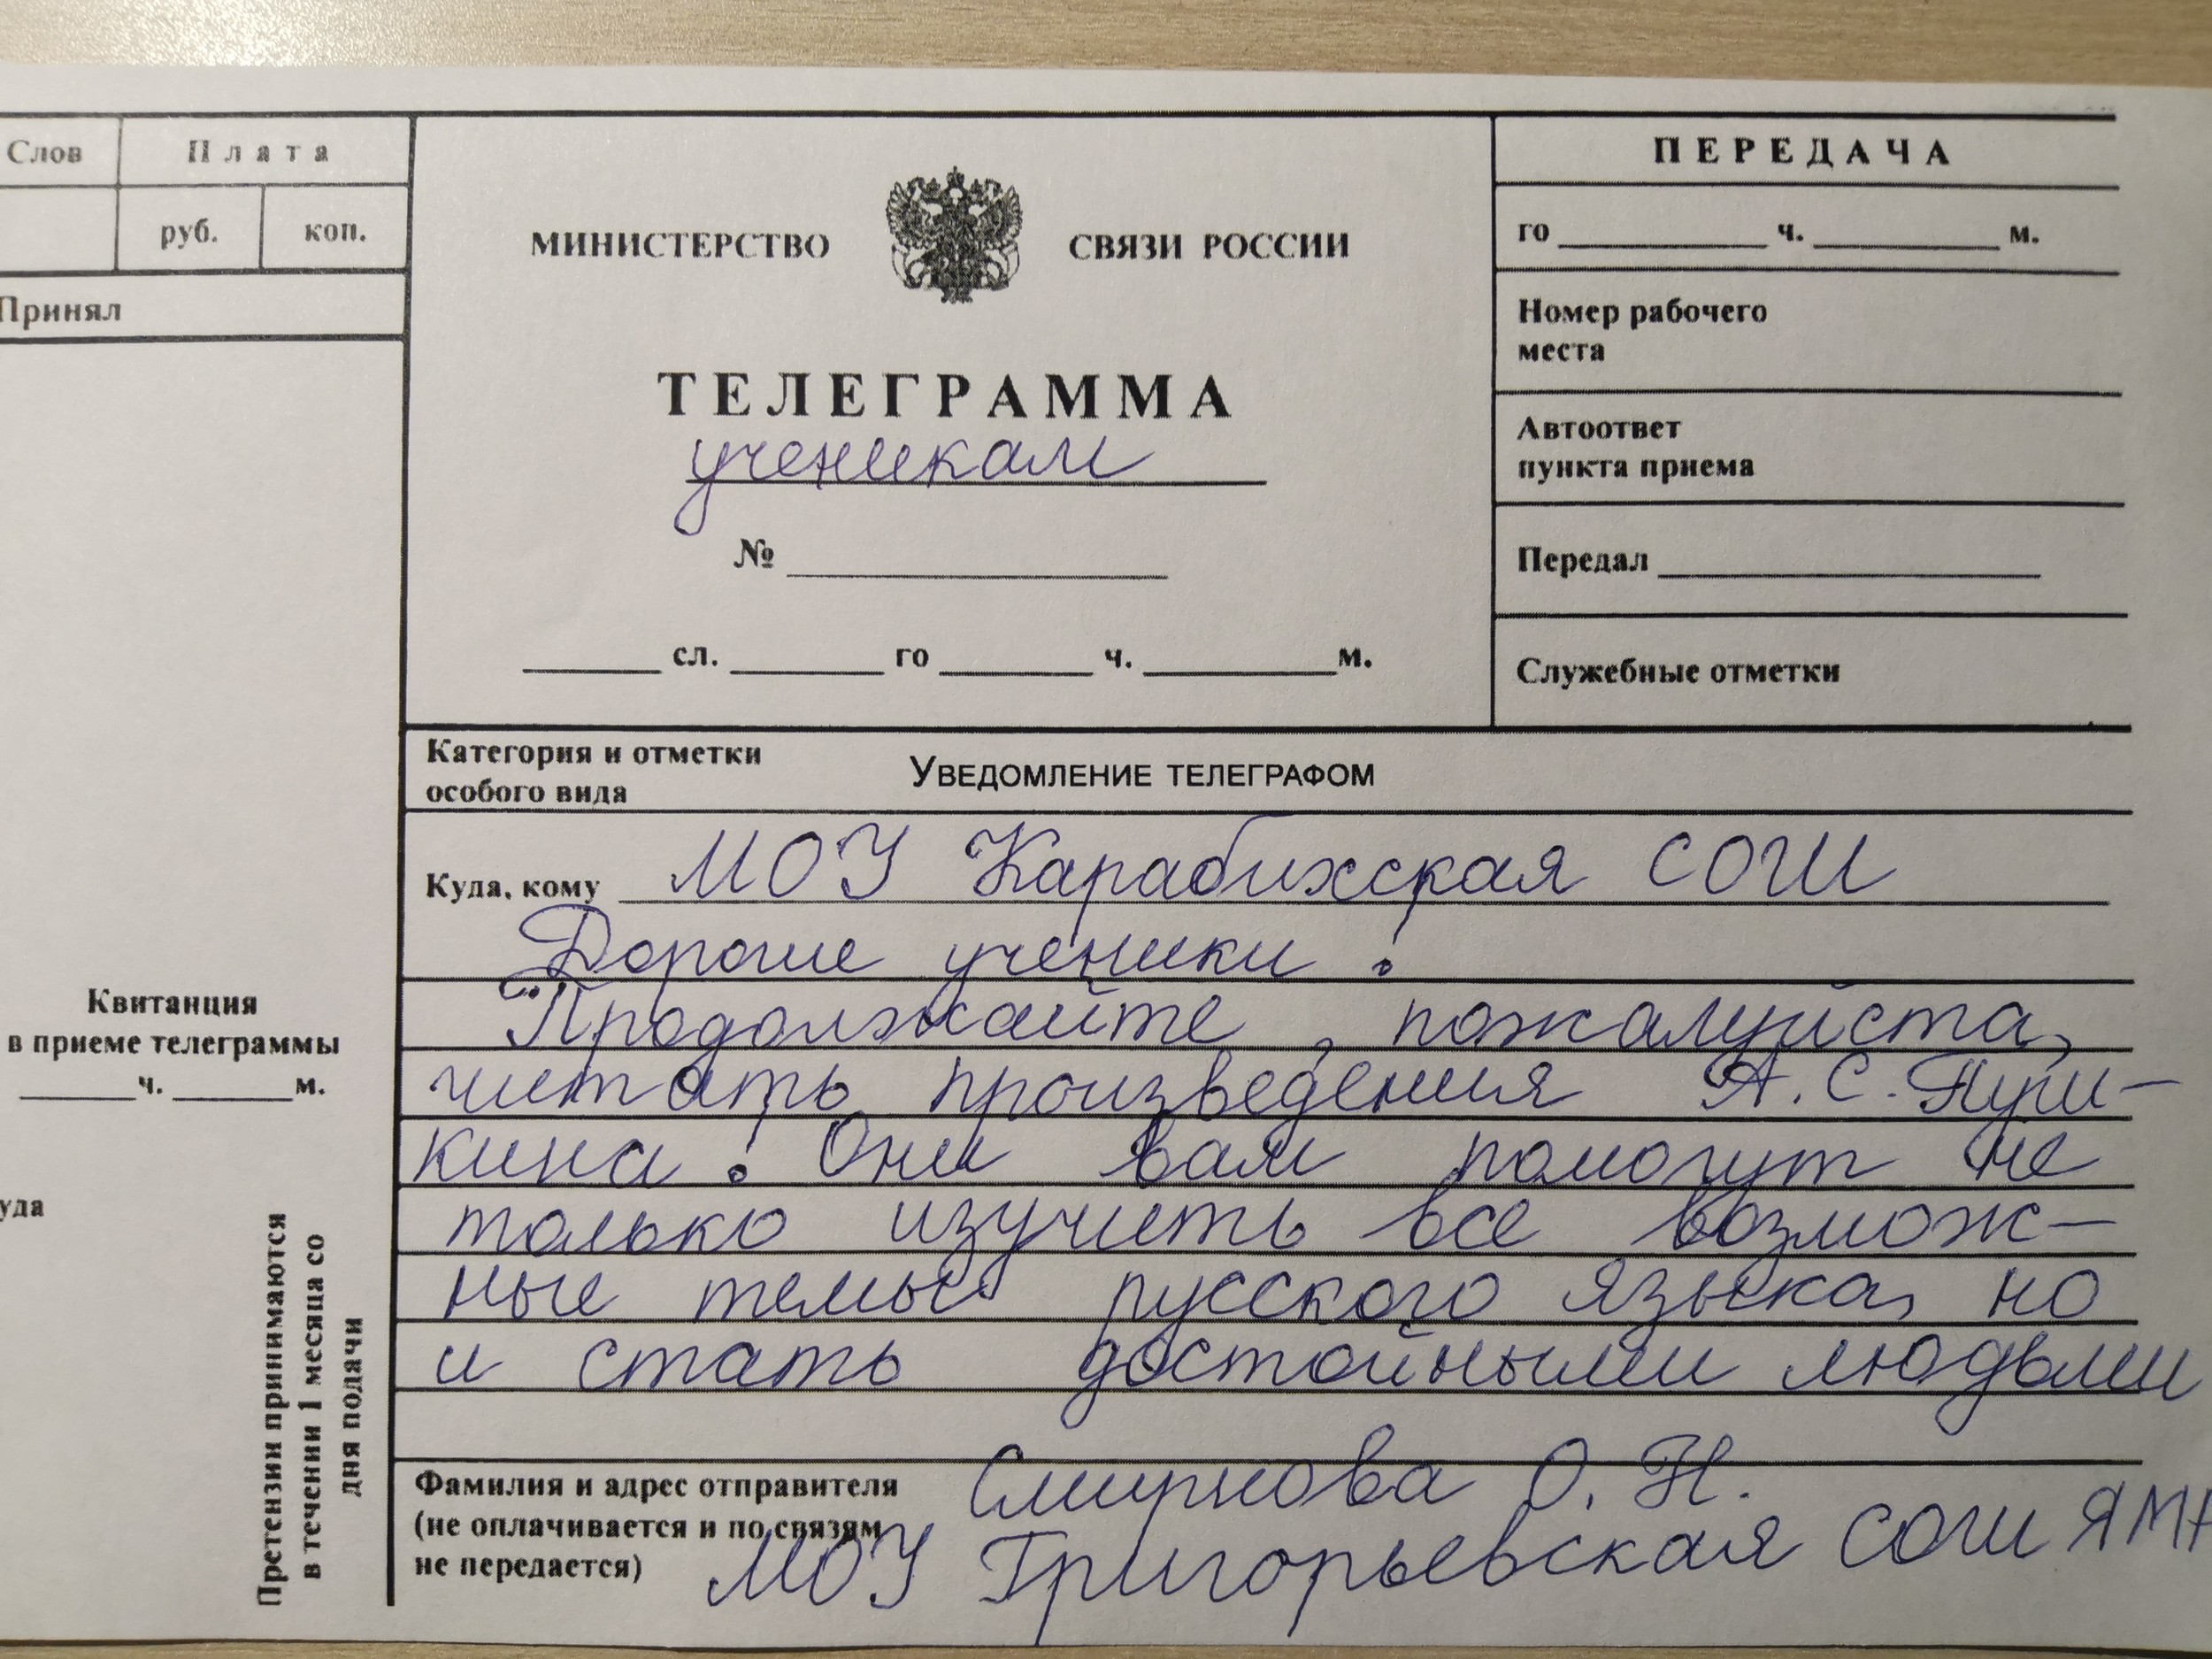 Слов
Плата
руб.
коп.
Принял
Квитанция
в приеме телеграммы
ч. м.
уда
Претензии принимаются
в течении 1 месяца со
дня подачи
МИНИСТЕРСТВО СВЯЗИ РОССИИ
ТЕЛЕГРАММА
ученикам
№
сл. го ч. м.
ПЕРЕДАЧА
го ч. м.
Номер рабочего
места
Автоответ
пункта приема
Передал
Служебные отметки
Категория и отметки
особого вида
УВЕДОМЛЕНИЕ ТЕЛЕГРАФОМ
Куда, кому МОУ Карабихская СОШ
Дорогие ученики!
Продолжайте, пожалуйста,
читать произведения А.С. Пуш-
кина! Они вам помогут не
только изучить все возмож-
ные темы русского языка, но
и стать достойными людьми
Фамилия и адрес отправителя
(не оплачивается и по связям
не передается)
Смирнова О. Н.
МОУ Григорьевская СОШ ЯМР